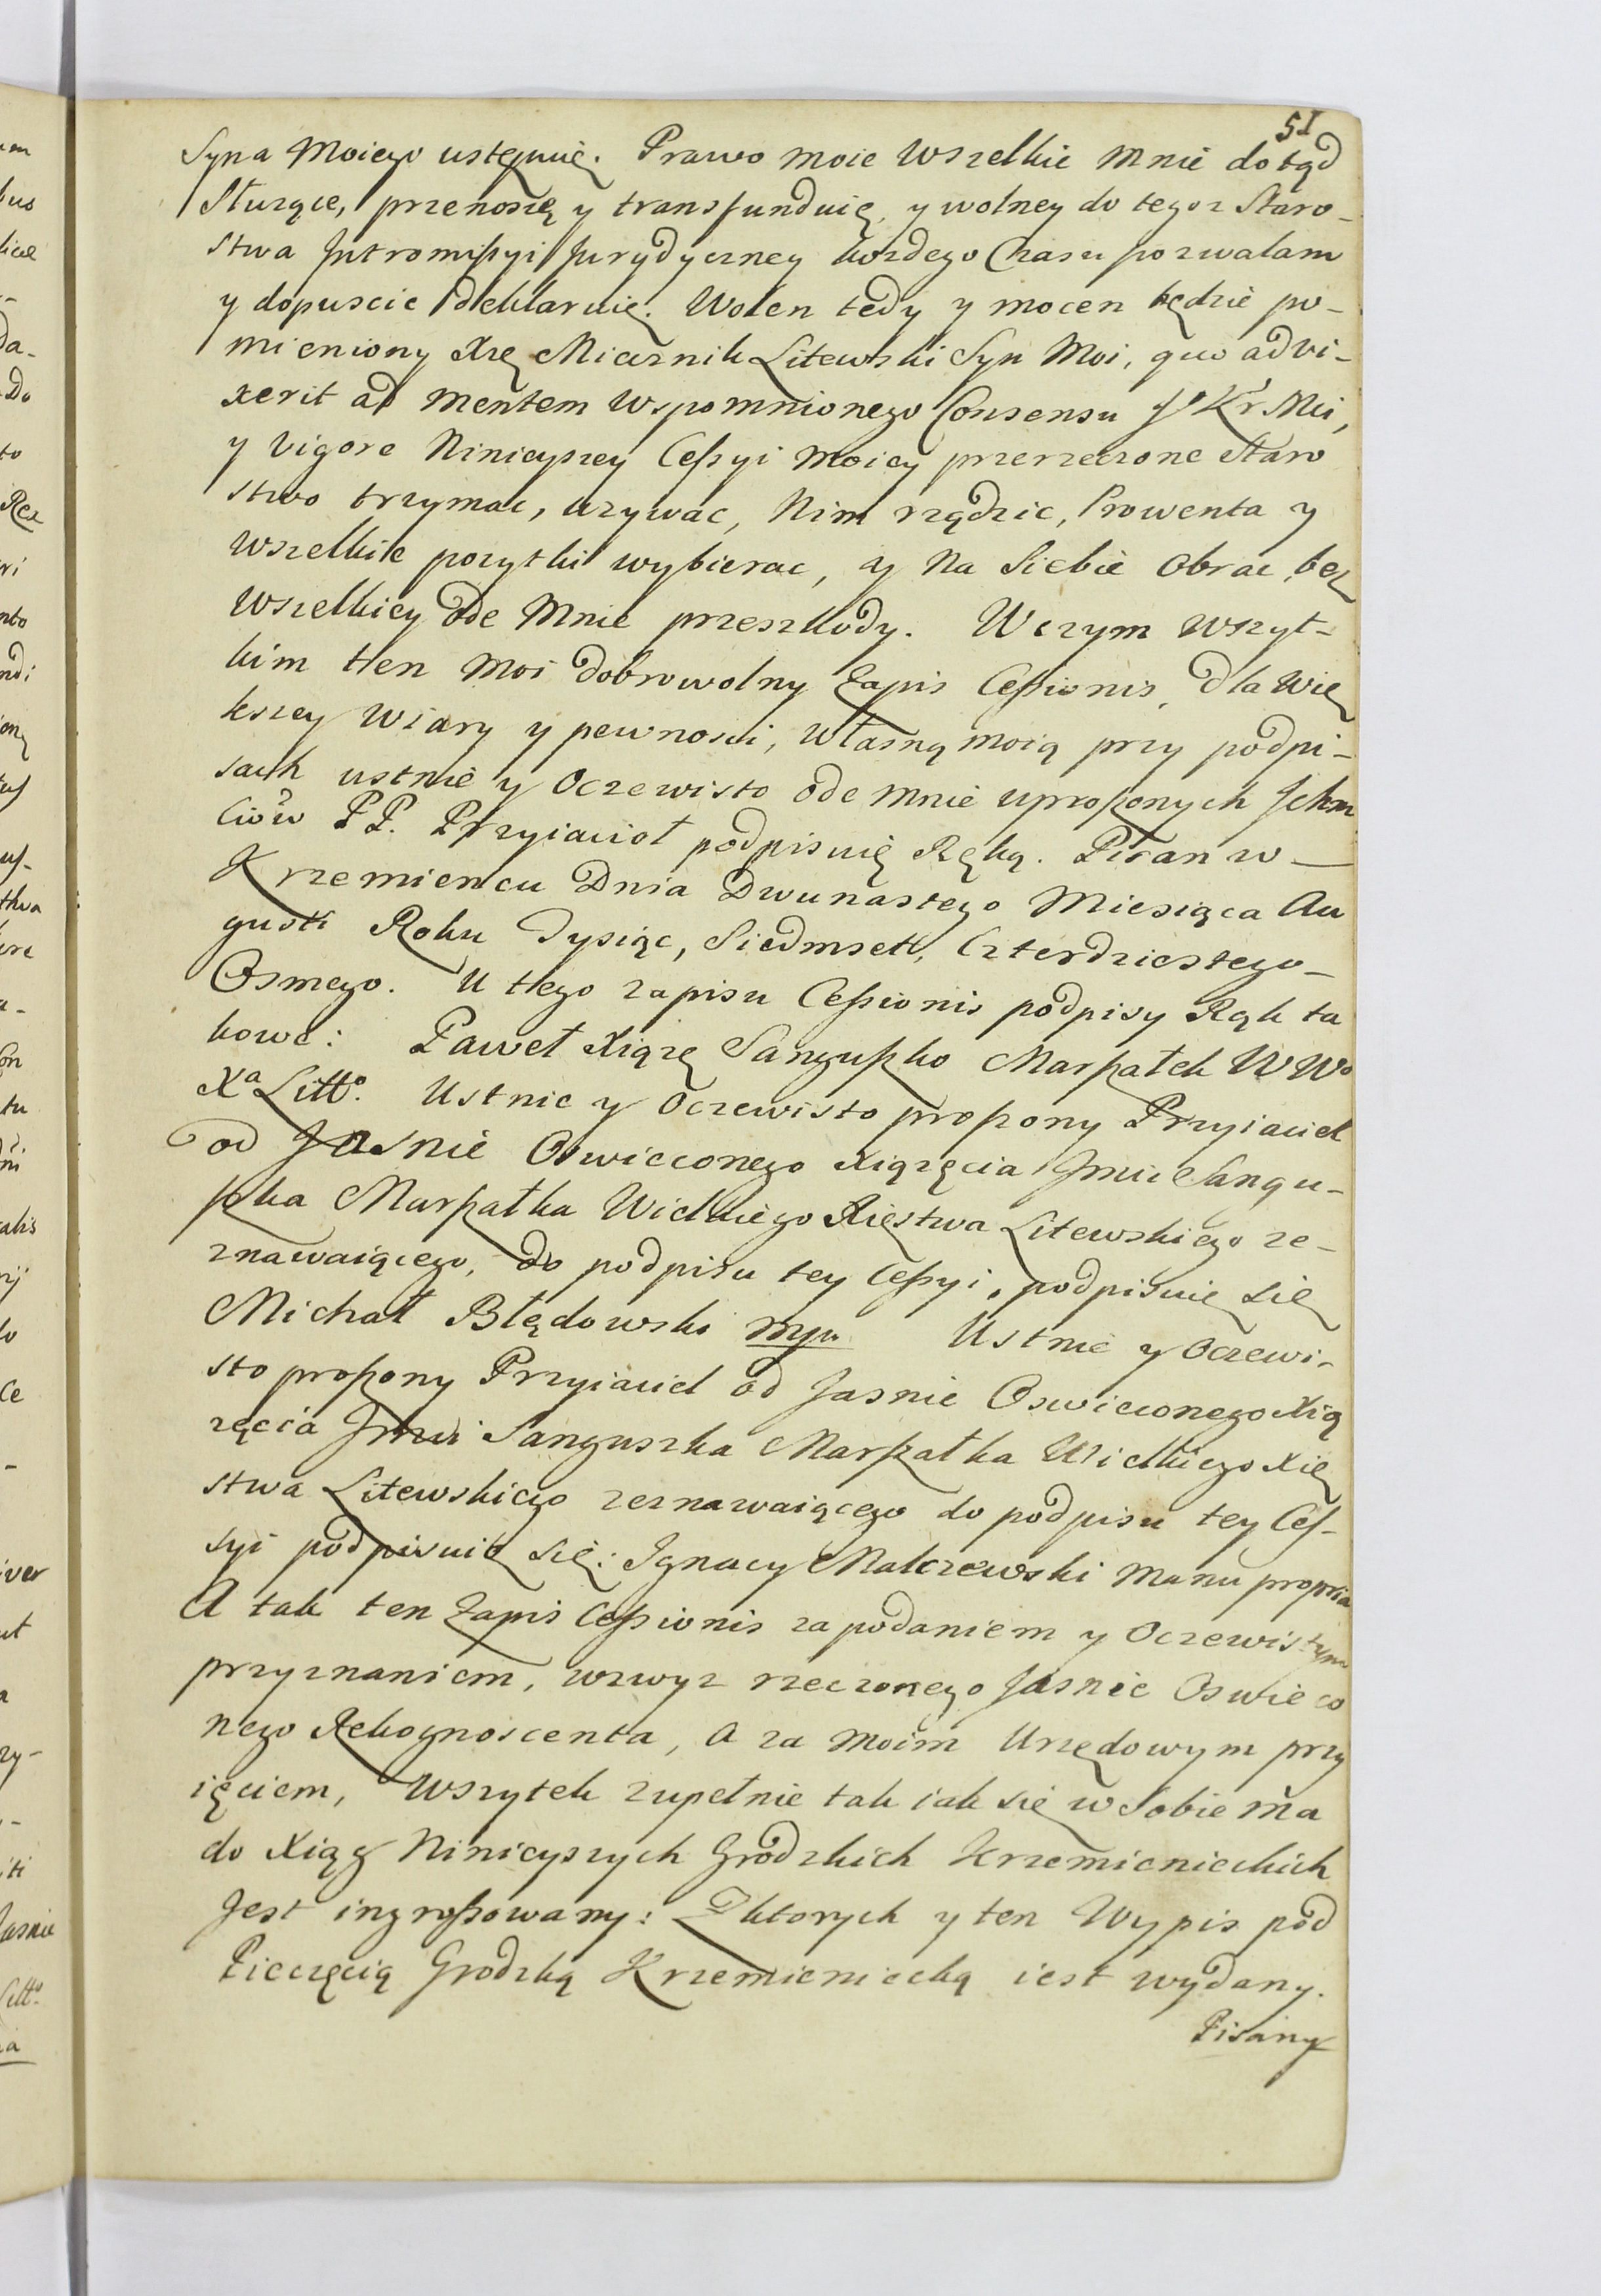 51
Syna Moiego ustępuię. Prawo moie wszelkie mnie dotąd
służące, przenoszę y transfunduię, y wolney do tegoz Staro-
stwa Intromissyi Jurydyczney kozdego Czasu pozwalam
y dopuscic deklaruię. Wolen tedy y mocen będzie po-
mieniony Xże Miecznik Litewski Syn Moi, quo advi-
xerit ad mentem wspomnionego Consensu J Kr Mci,
y vigore Ninieyszey Cessyi moiey przerzeczone Staro
stwo trzymac, uzywac, Nim rządzic, Prowenta y
wszelkie pozytki wybierac, y Na Siebie obrac, bez
wszelkiey ode Mnie przeszkody. W czym wszyt-
kim ten moi dobrowolny Zapis Cessionis, dla wię
kszey wiary y pewnosci, własną moią przy podpi-
sach ustnie y oczewisto ode mnie uproszonych Ichm
ciow PP. Przyiacioł podpisuię Ręką. Pisan w
Krzemiencu Dnia Dwunastego Miesiąca Au
gusti Roku Tysiąc, Siedmset, Czterdziestego-
Osmego. U tego zapisu Cessionis podpisy Rąk ta
kowe: Paweł Xiąże Sanguszko Marszałek W Wo
Xa Litto. Ustnie y oczewisto proszony Przyiaciel
od Jasnie Oswieconego Xiązęcia Jmci Sangu-
szka Marszałka Wielkiego Xięstwa Litewskiego ze-
znawaiącego, do podpisu tey Cessyi, podpisuię się
Michał Błędowski mpr Ustnie y oczewi-
sto proszony Przyiaciel od Jasnie Oswieconego Xią
zęcia Jmci Sanguszka Marszałka Wielkiego Xię
stwa Litewskiego zeznawaiącego do podpisu tey Ces-
syi podpisuię się: Ignacy Malczewski manu propria
A tak ten Zapis Cessionis za podaniem y oczewistym
przyznaniem, wzwyz rzeczonego Jasnie Oswieco
nego Rekognoscenta, a za moim Urzędowym przy
ięciem, wszytek zupełnie tak iak się w sobie ma
do Xiąg Ninieyszych Grodzkich Krzemienieckich
Jest ingrossowany: Z ktorych y ten Wypis pod
Pieczęcią Grodzką Krzemieniecką iest wydany.
Pisany